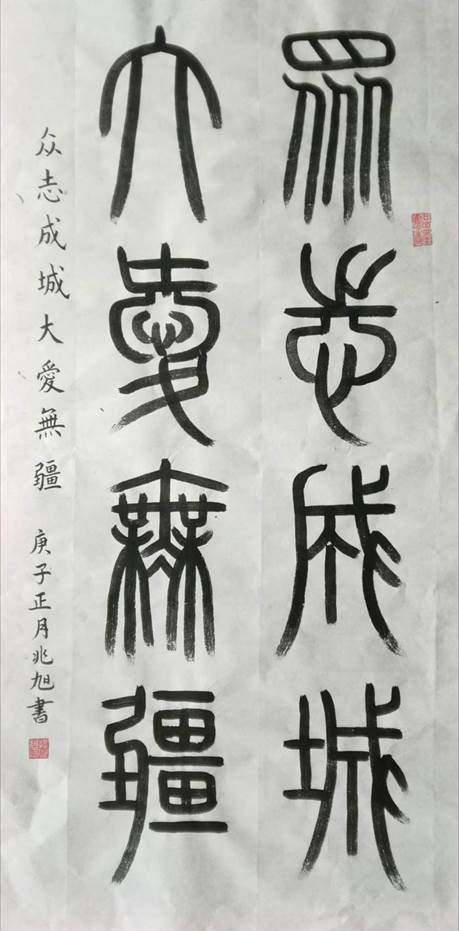 眾志成城
大愛無疆
众志成城大愛無疆 庚子正月兆旭書